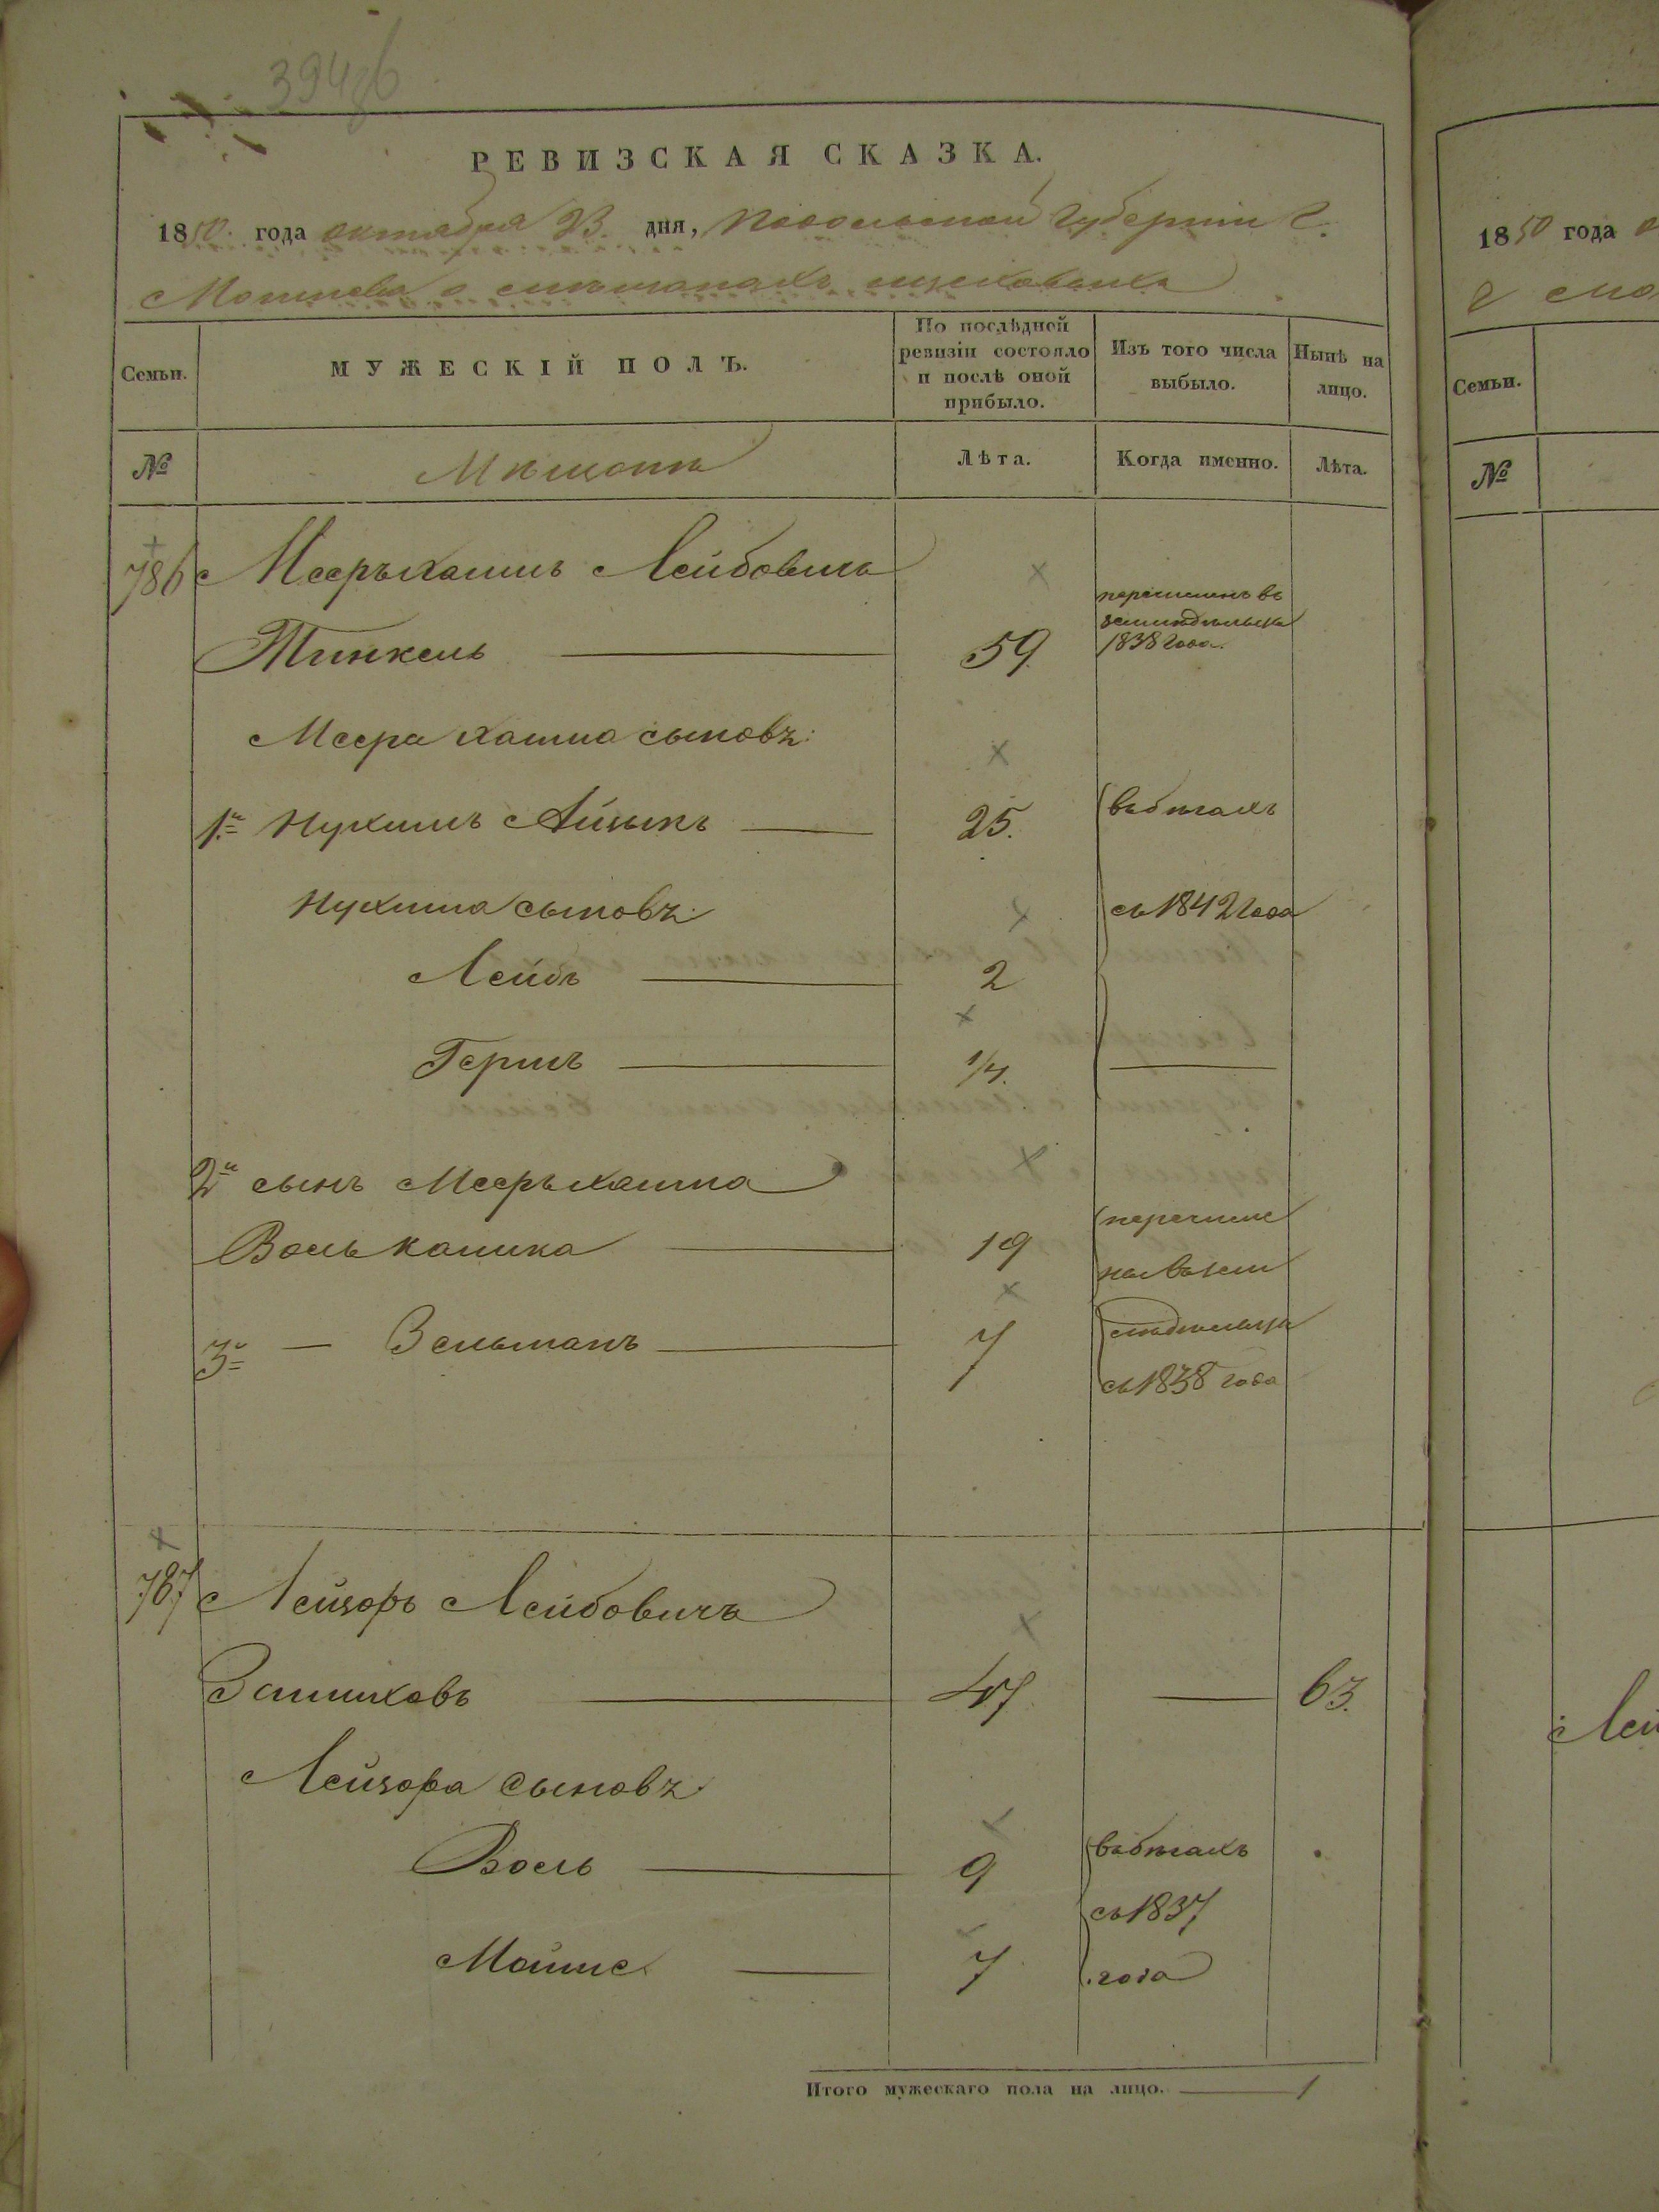 394об
РЕВИЗСКАЯ СКАЗКА.
1850 года октября 23. дня, Подольской Губернiи Г.
Могилева о мѣщанахъ
Семьи.
МУЖЕСКІЙ ПОЛЪ.
По послѣдней ревизіи состояло и послѣ оной прибыло.
Изъ того числа выбыло.
Нынѣ на лицо.
№
Мѣщане
Лѣта.
Когда именно.
Лѣта.
786
Меерьхаимъ Лейбовичъ
Тинкель 59. перечисленъ въ
земледѣльцы
1838 года.
Меера Хаима сыновъ:
1й Нухимъ Айзыкъ 25. въ бѣгахъ
Нухима сыновъ: съ 1842 года
Лейбъ 2
Гершъ 1/4.
2й сынъ Меерьхаима
Воль 19 перечисле
ны въ зем
3й — Зельманъ 7 ледѣльцы
съ 1838 года
787
Лейзоръ Лейбовичъ
47 63.
Лейзора сыновъ
Восль 9 въ бѣгахъ
съ 1837
Мошис 7 года
Итого мужескаго пола на лицо. 1
1850 года
Семьи.
№
Лей